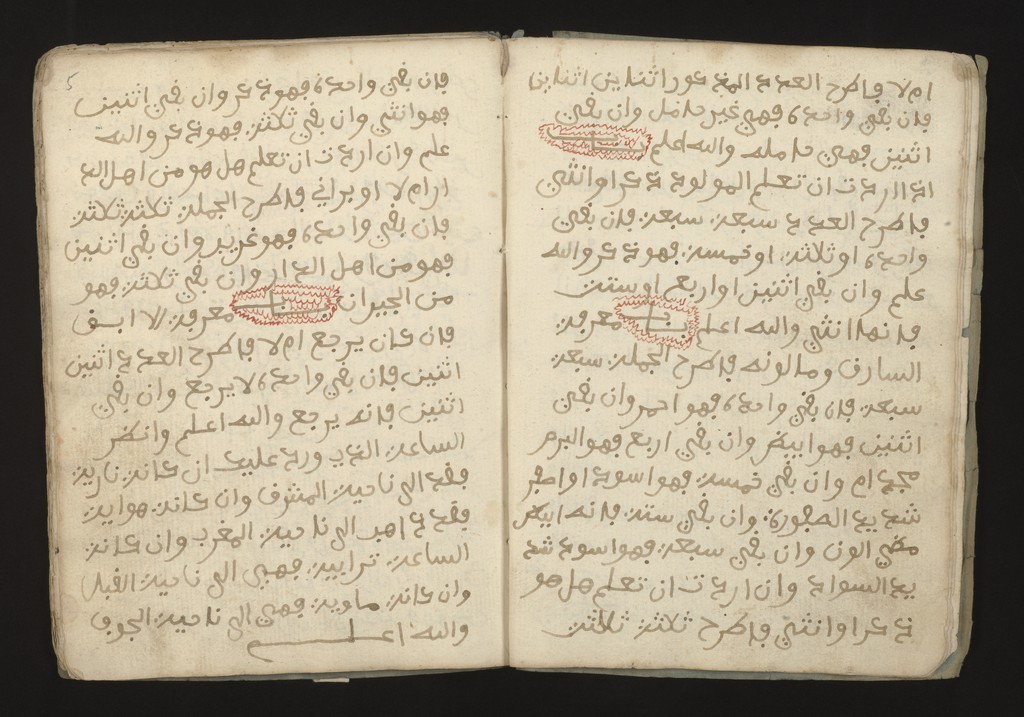 ام لا فاطرح العدد المذكور اثنين اثنين
فان بقي واحدة فهي غير حامل وان بقي
اثنين فهي حامله والله اعلم باب
اذا اردت ان تعلم المولود ذكرا وانثي
فاطرح العدد سبعة سبعة فان بقي
واحدة او ثلاثة او خمسة فهو ذكر والله
علم وان بقي اثنين او اربع او ستة
فانها انثي والله اعلم باب معرفة
السارق وما لونه فاطرح الجملة سبعة
سبعة فان بقي واحدة فهو احمر وان بقي
اثنين فهو ابيض وان بقي اربع فهو
وان بقي خمسة فهو اسود او اصفر
شديد وان بقي ستة فانه ابيض
الون وان بقي سبعة فهو اسود شد
يد السواد وان اردت ان تعلم هل هو
ذكر او انثي فاطرح ثلاثة ثلاثة
5
فان بقي واحدة فهو ذكر وان بقي اثنين
فهو انثي وان بقي ثلاثة فهو ذكر والله
علم وان اردت ان تعلم هل هو من اهل الد
ار ام لا او براني فاطرح الجملة ثلاثة ثلاثة
فان بقي واحدة فهو غريب وان بقي اثنين
فهو من اهل الدار وان بقي ثلاثة فهو
من الجيران باب معرفة الابق
فان كان يرجع ام لا فاطرح العدد اثنين
اثنين فان بقي واحدة لا يرجع وان بقي
اثنين فانه يرجع والله اعلم وانظر
الساعة الذي ورد عليك ان كانة نارية
فقد الي ناحية المشرق وان كانة هواية
فقد ذاهب الي ناحية المغرب وان كانة
الساعة ترابية فهي الي ناحية القبلا
وان كانة ماوية فهي الي ناحية الجوف
والله اعلم